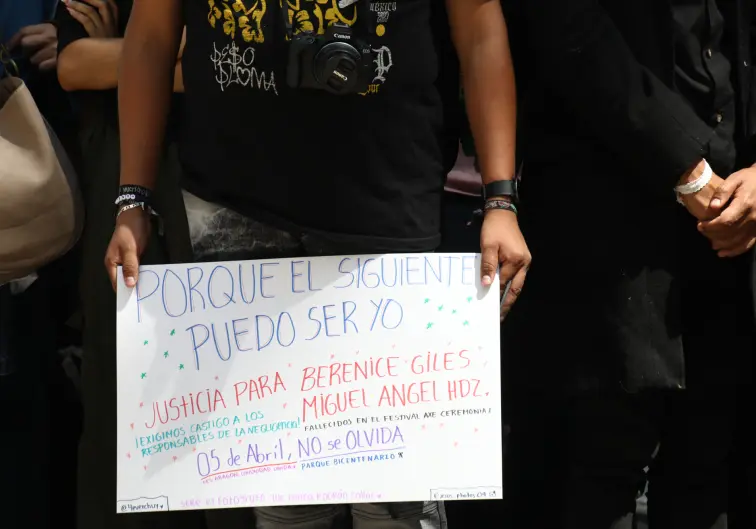 MÉXICO
PESO
PLUMA
P
Canon
PORQUE EL SIGUIENTE
PUEDO SER YO
JUSTICIA PARA BERENICE GILES
MIGUEL ANGEL HDZ.
¡EXIGIMOS CASTIGO A LOS
RESPONSABLES DE LA NEGLIGENCIA!
FALLECIDOS EN EL FESTIVAL AXE CEREMONIA!
05 de Abril, NO se OLVIDA
PARQUE BICENTENARIO